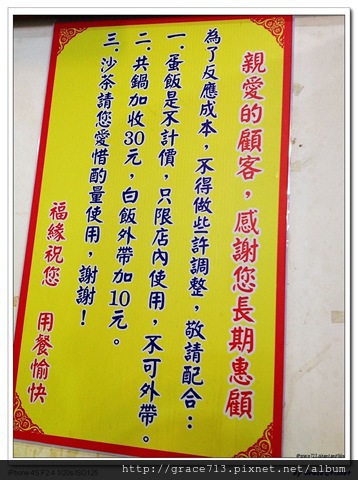 親愛的顧客，感謝您長期惠顧
為了反應成本，不得做些許調整，敬請配合：
一.蛋飯是不計價，只限店內使用，不可外帶。
二.共鍋加收30元，白飯外帶加10元。
三.沙茶請您愛惜酌量使用，謝謝！
福緣祝您 用餐愉快
http://grace713.pixnet.net/album